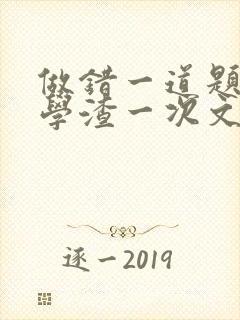 做錯一道題
學渣一次文
逐一2019